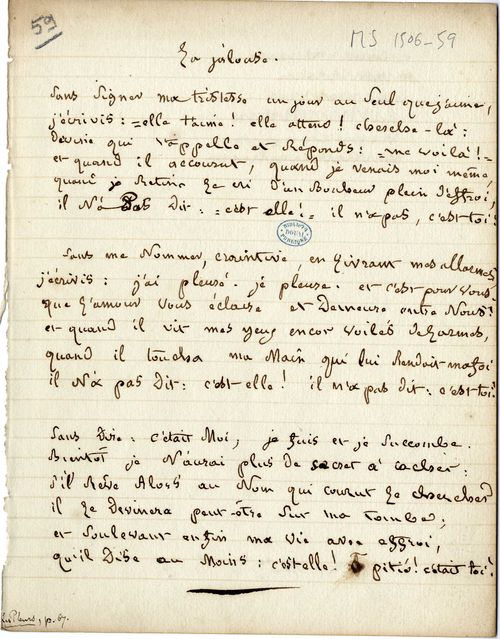 59
MS 1506-59
La jalouse.
Sans signer ma tristesse un jour au seul que j'aime,
j'écrivis : = elle t'aime ! elle attend ! cherche-la :
Devine qui t'appelle et Réponds : = me voilà ! =
et quand il accourut, quand je venais moi même,
quand je Retins Le cri D'un Bonheur plein D'effroi,
il N'a Pas Dit : = c'est elle ! = il n'a pas, c'est toi !
BIBLIOTH. DOUAI PUBLIQUE
Sans me Nommer, craintive en Livrant mes allarmes
j'écrivis : j'ai pleuré. je pleure. et c'est pour vous.
que L'amour vous éclaire et Demeure entre Nous !
et quand il vit mes yeux encor voilés De Larmes,
quand il toucha ma Main qui lui Rendait ma foi
il N'a pas Dit : c'est elle ! il n'a pas Dit : c'est toi !
Sans Dire : c'était Moi, je fuis et je succombe.
Bientôt je N'aurai plus De secret à cacher :
S'il Rêve Alors au Nom qui courut Le chercher
il Le Devinera peut-être Sur ma tombe ;
et Soulevant enfin ma vie avec effroi,
qu'il Dise au Moins : c'est elle ! Ô pitié ! c'était toi !
Les Pleurs, p. 67.